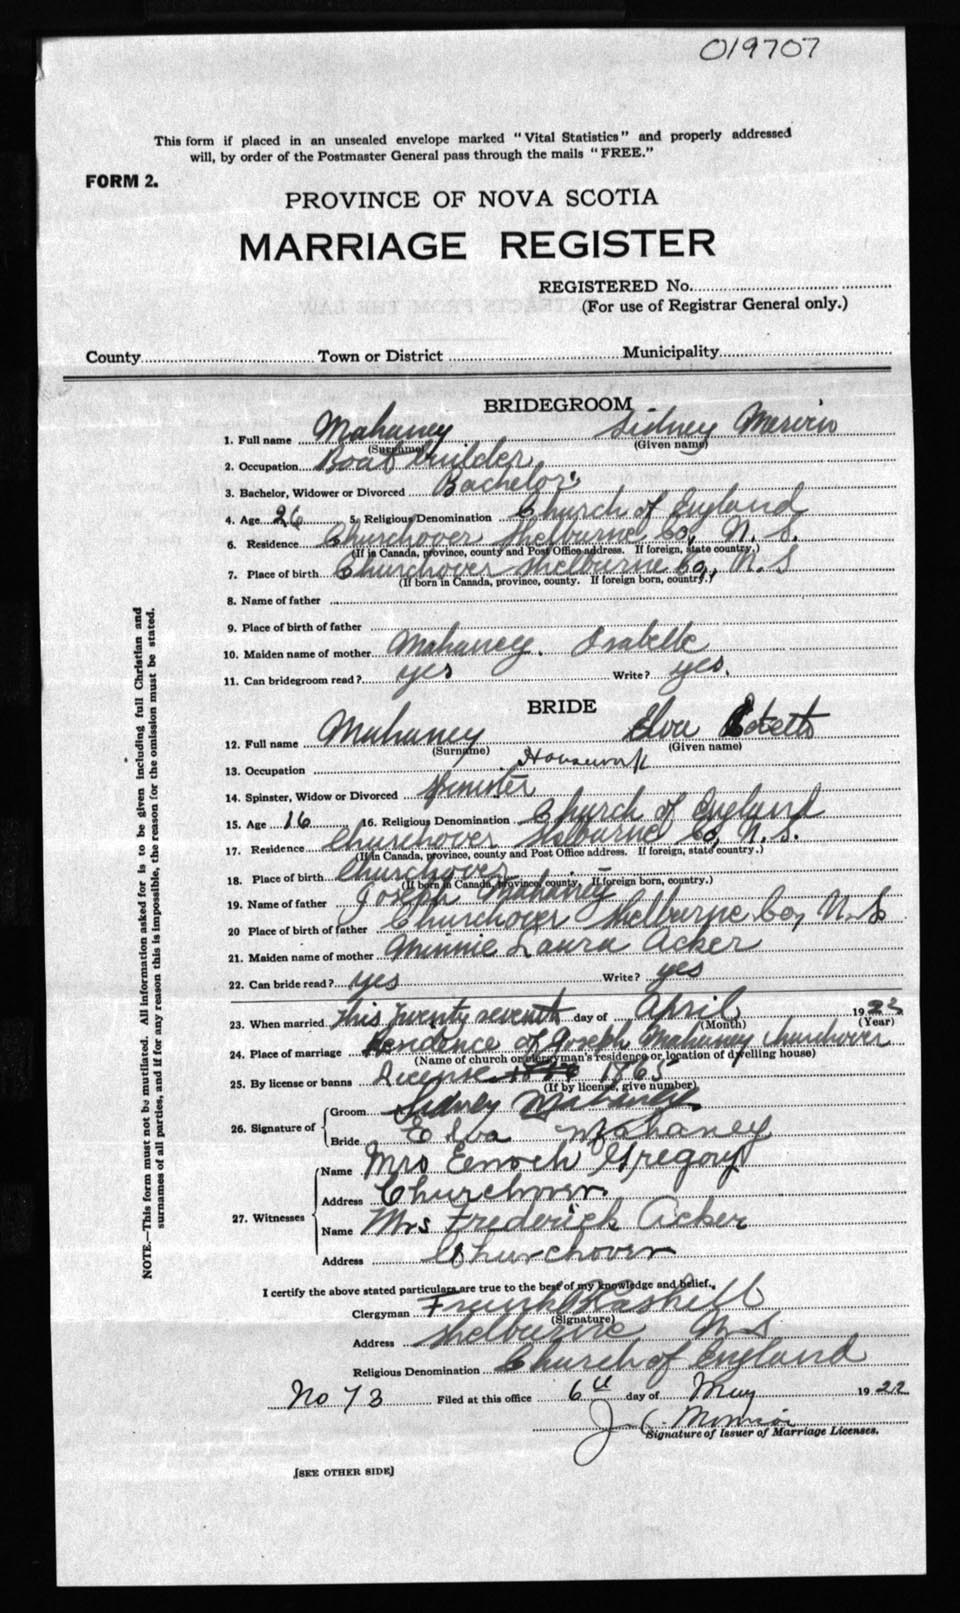 019707
This form if placed in an unsealed envelope marked "Vital Statistics" and properly addressed
will, by order of the Postmaster General pass through the mails "FREE."
FORM 2.
PROVINCE OF NOVA SCOTIA
MARRIAGE REGISTER
REGISTERED No.
(For use of Registrar General only.)
County Town or District Municipality
BRIDEGROOM
1. Full name Mahaney Sidney Mervin
(Surname) (Given name)
2. Occupation Boat builder
3. Bachelor, Widower or Divorced Bachelor
4. Age 26 5. Religious Denomination Church of England
6. Residence Churchover Shelburne Co, N. S.
(If in Canada, province, county and Post Office address. If foreign, state country.)
7. Place of birth Churchover Shelburne Co, N. S
(If born in Canada, province, county. If foreign born, country.)
8. Name of father
9. Place of birth of father
10. Maiden name of mother Mahaney. Isabelle
11. Can bridegroom read? yes Write? yes.
BRIDE
12. Full name Mahaney Elva
(Surname) (Given name)
13. Occupation Housework
14. Spinster, Widow or Divorced Spinster
15. Age 16 16. Religious Denomination Church of England
17. Residence Churchover Shelburne Co, N. S.
(If in Canada, province, county and Post Office address. If foreign, state country.)
18. Place of birth Churchover
(If born in Canada, province, county. If foreign born, country.)
19. Name of father Joseph Mahaney
20 Place of birth of father Churchover Shelburne Co, N. S
21. Maiden name of mother Minnie Laura Acker
22. Can bride read? yes Write? yes
23. When married this Twenty seventh day of April 1922
(Month) (Year)
24. Place of marriage Residence of Joseph Mahaney Churchover
(Name of church or clergyman's residence or location of dwelling house)
25. By license or banns License 1765
(If by license, give number)
26. Signature of
Groom Sidney Mahaney
Bride Elva Mahaney
27. Witnesses
Name Mrs Enoch Gregory
Address Churchover
Name Mrs Frederick Acker
Address Churchover
I certify the above stated particulars are true to the best of my knowledge and belief.
Clergyman Frank Rashell
(Signature)
Address Shelburne N. S
Religious Denomination Church of England
No 73 Filed at this office 6th day of May 1922
J. C. Morrison
Signature of Issuer of Marriage Licenses.
[SEE OTHER SIDE]
NOTE.—This form must not be mutilated. All information asked for is to be given including full Christian and
surnames of all parties, and if for any reason this is impossible, the reason for the omission must be stated.